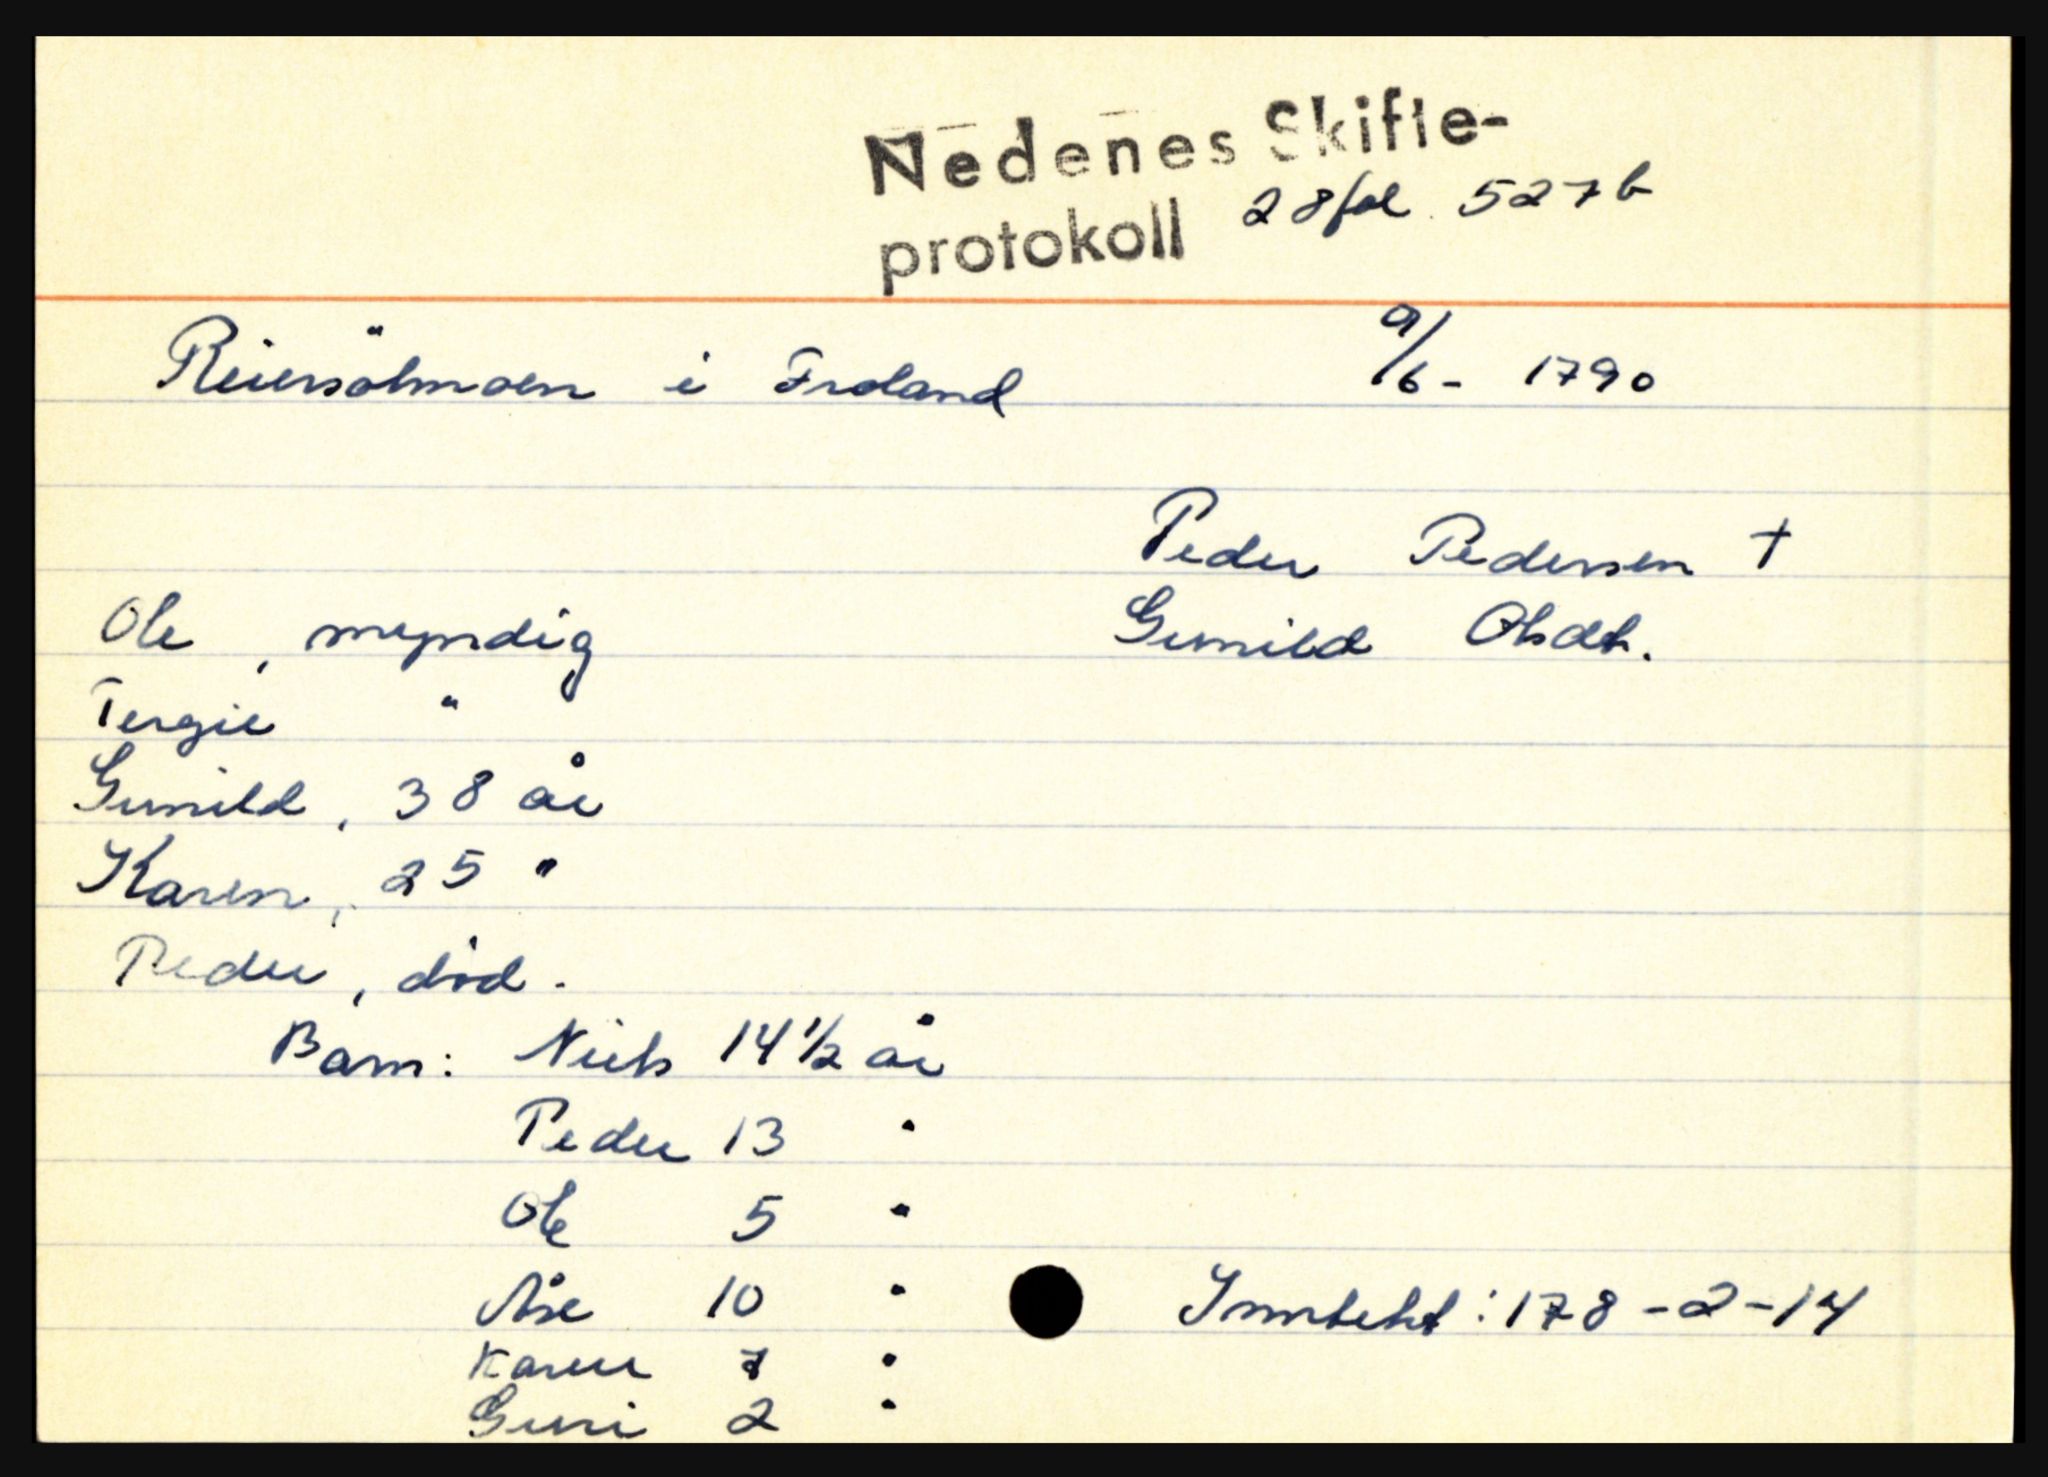 Nedenes Skifte-
protokoll 28 fol. 527b
Reiersölmoen i Froland 9/6- 1790
Peder Pedersen †
Ole, myndig Gunild Olsdt.
Tergie "
Gunild, 38 år
Karen, 25 "
Peder, død.
Barn: Niels 14 1/2 år
Peder 13 "
Ole 5 "
Åse 10 "
Inntekt: 178-2-14
Karen 7 "
Guri 2 "